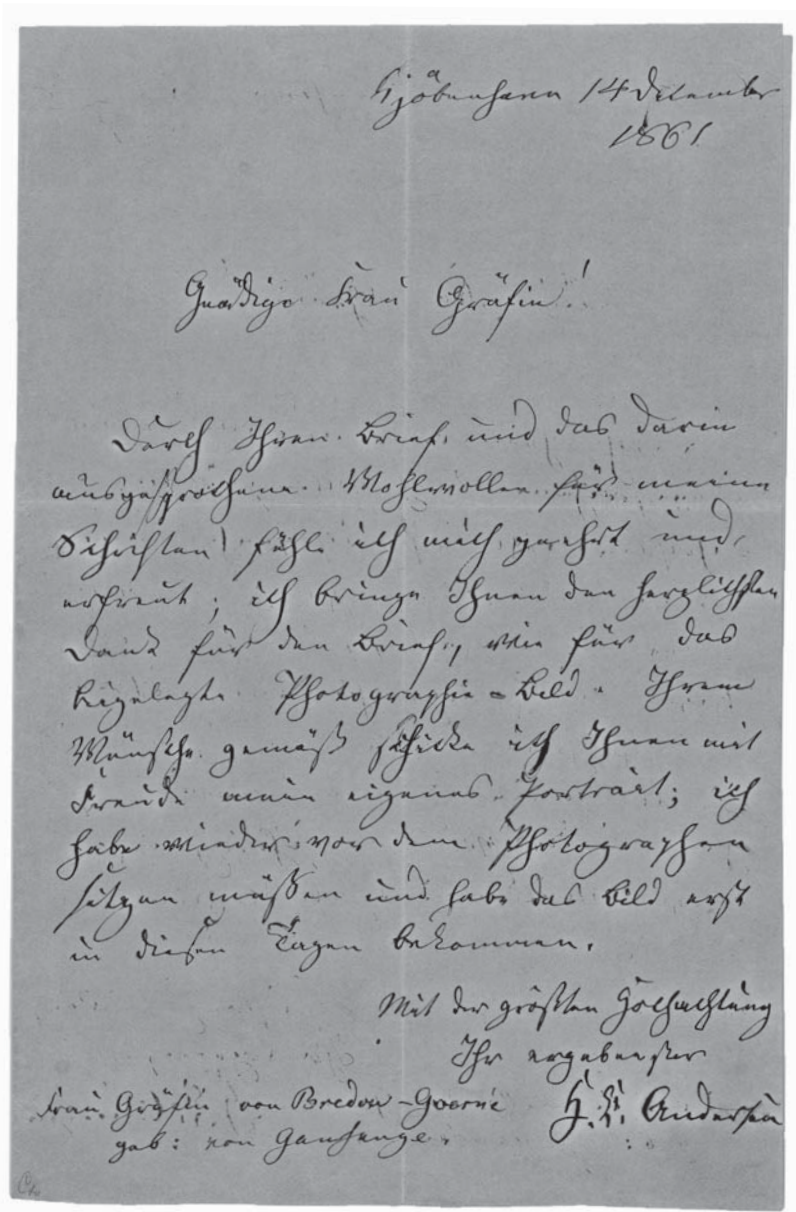 Kjöbenhavn 14 December
1861.
Gnädige Frau Gräfin!
Durch Ihren Brief, und das darin
ausgesprochene Wohlwollen für meine
Schriften fühle ich mich geehrt und
erfreut; ich bringe Ihnen den herzlichsten
Dank für den Brief, wie für das
beigelegte Photographie-Bild. Ihrem
Wünsche gemäß schicke ich Ihnen mit
Freude mein eigenes Porträit; ich
habe wieder vor dem Photographen
sitzen müßen und habe das Bild erst
in diesen Tagen bekommen.
Mit der größten Hochachtung
Ihr ergebenster
H. C. Andersen
Frau Gräfin von Bredow-Goerne
geb: von